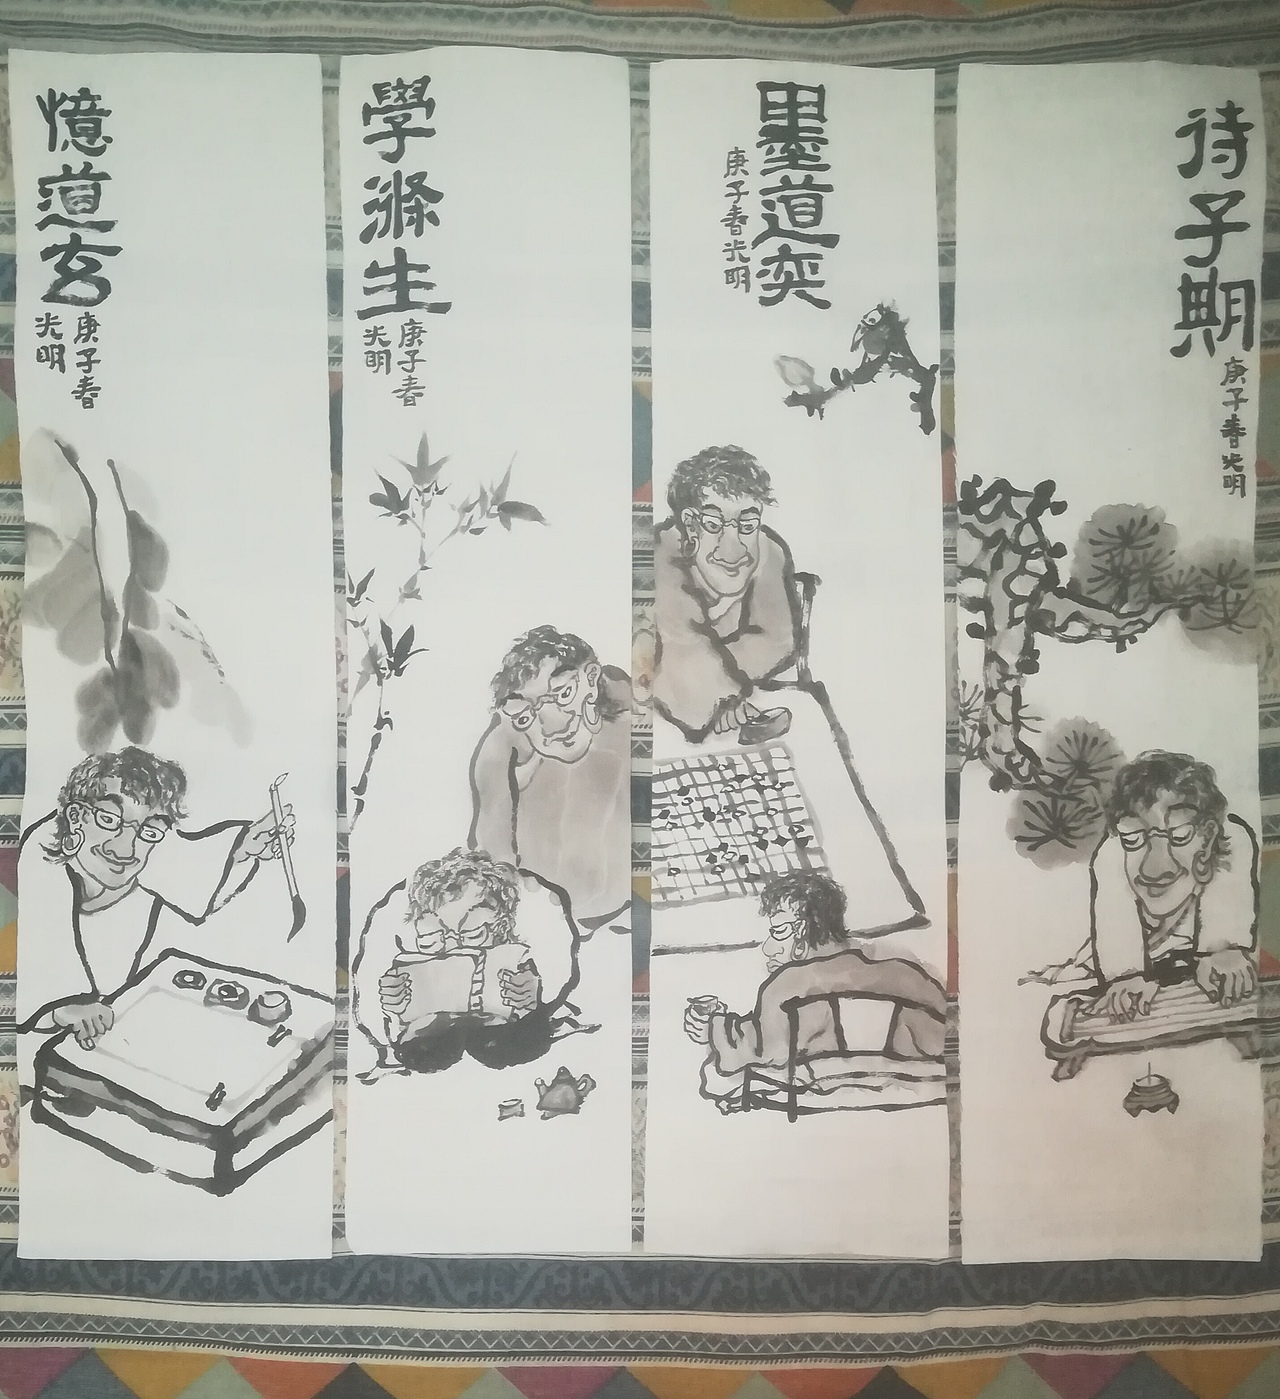 待子期
庚子春光明
墨道奕
庚子春光明
學滌生
庚子春
光明
憶道玄
庚子春
光明